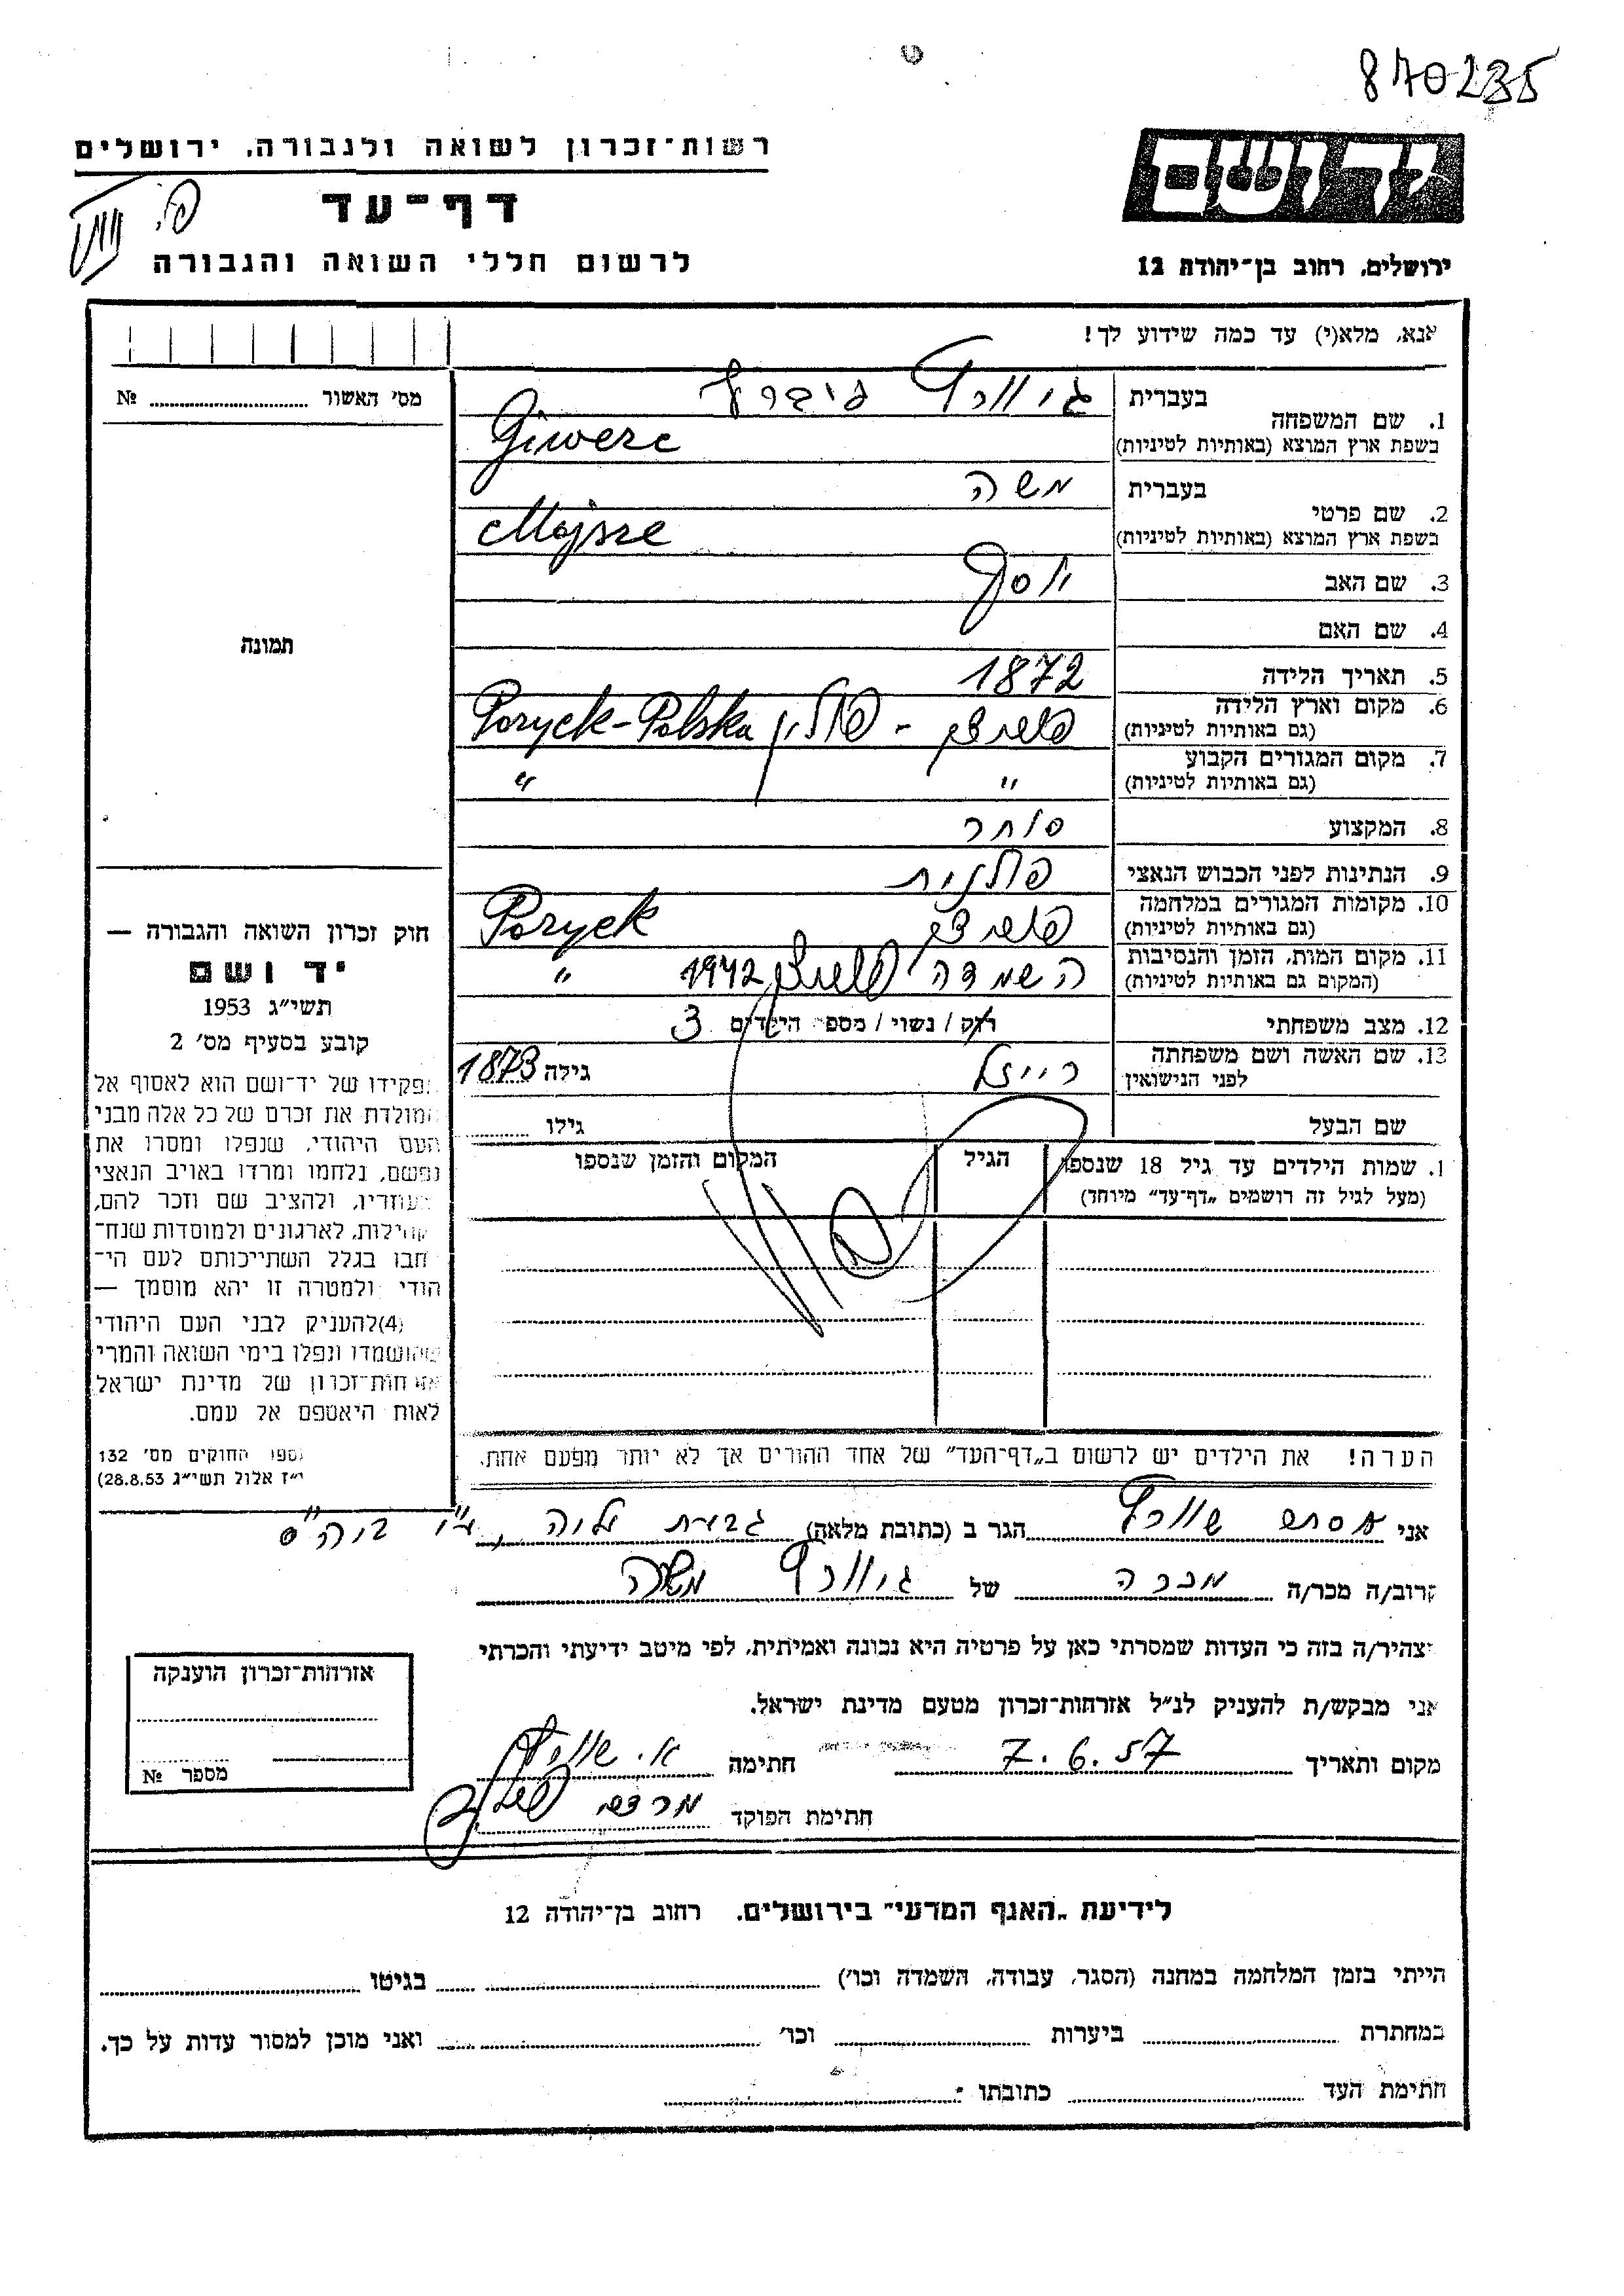 870235
רשות־זכרון לשואה ולגבורה, ירושלים
דף־עד
לרשום חללי השואה והגבורה
יד ושם
ירושלים, רחוב בן־יהודה 12
אנא, מלא(י) עד כמה שידוע לך!
מס׳ האשור № 
תמונה
1. שם המשפחה בעברית גיוורץ גיברץ
בשפת ארץ המוצא (באותיות לטיניות) Giwerc
2. שם פרטי בעברית משה
בשפת ארץ המוצא (באותיות לטיניות) Mojsze
3. שם האב יוסף
4. שם האם
5. תאריך הלידה 1872
6. מקום וארץ הלידה (גם באותיות לטיניות) פוריצק - פולין Poryck-Polska
7. מקום המגורים הקבוע (גם באותיות לטיניות) " "
8. המקצוע סוחר
9. הנתינות לפני הכבוש הנאצי פולנית
10. מקומות המגורים במלחמה (גם באותיות לטיניות) Poryck
11. מקום המות, הזמן והנסיבות (המקום גם באותיות לטיניות) השמדה 1942 "
12. מצב משפחתי רוק / נשוי / מספר הילדים 3
13. שם האשה ושם משפחתה לפני הנישואין רייזל גילה 1873
שם הבעל גילו
1. שמות הילדים עד גיל 18 שנספו (מעל לגיל זה רושמים „דף־עד״ מיוחד) הגיל המקום והזמן שנספו
הערה! את הילדים יש לרשום ב„דף־העד״ של אחד ההורים אך לא יותר מפעם אחת.
חוק זכרון השואה והגבורה —
יד ושם
תשי״ג 1953
קובע בסעיף מס׳ 2
תפקידו של יד־ושם הוא לאסוף אל
המולדת את זכרם של כל אלה מבני
העם היהודי, שנפלו ומסרו את
נפשם, נלחמו ומרדו באויב הנאצי
ובעוזריו, ולהציב שם וזכר להם,
לקהילות, לארגונים ולמוסדות שנח־
רבו בגלל השתייכותם לעם הי־
הודי ולמטרה זו יהא מוסמך —
(4)להעניק לבני העם היהודי
שהושמדו ונפלו בימי השואה והמרי
אזרחות־זכרון של מדינת ישראל
לאות היאספם אל עמם.
ספר החוקים מס׳ 132
י״ז אלול תשי״ג (28.8.53)
אני אסתר שוורץ הגר ב (כתובת מלאה)
קרוב/ה מכר/ה מכרה של גיוורץ משה
מצהיר/ה בזה כי העדות שמסרתי כאן על פרטיה היא נכונה ואמיתית, לפי מיטב ידיעתי והכרתי
אני מבקש/ת להעניק לנ״ל אזרחות־זכרון מטעם מדינת ישראל.
מקום ותאריך 7.6.57 חתימה א. שוורץ
חתימת הפוקד
אזרחות־זכרון הוענקה
מספר №
לידיעת „האגף המדעי״ בירושלים, רחוב בן־יהודה 12
הייתי בזמן המלחמה במחנה (הסגר, עבודה, השמדה וכו׳) בגיטו
במחתרת ביערות וכו׳ ואני מוכן למסור עדות על כך.
חתימת העד כתובתו